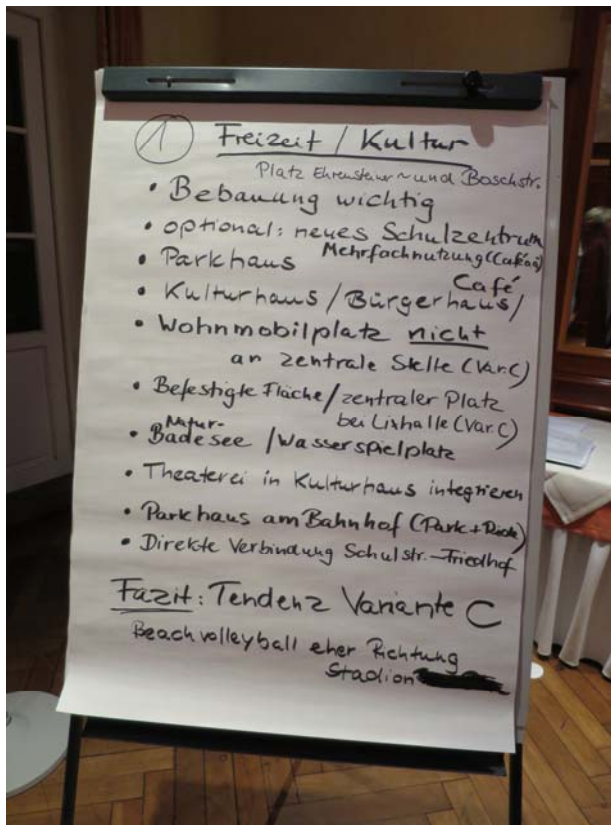 1 Freizeit / Kultur
Platz Ehrensteiner ~ und Boschstr.
• Bebauung wichtig
• optional: neues Schulzentrum
Mehrfachnutzung
• Parkhaus
Café
• Kulturhaus / Bürgerhaus /
• Wohnmobilplatz nicht
an zentrale Stelle (Var. C)
• Befestigte Fläche / zentraler Platz
bei Lixhalle (Var. C)
Natur-
• Badesee / Wasserspielplatz
• Theaterei in Kulturhaus integrieren
• Parkhaus am Bahnhof (Park + Ride)
• Direkte Verbindung Schulstr. – Friedhof
Fazit: Tendenz Variante C
Beachvolleyball eher Richtung
Stadion